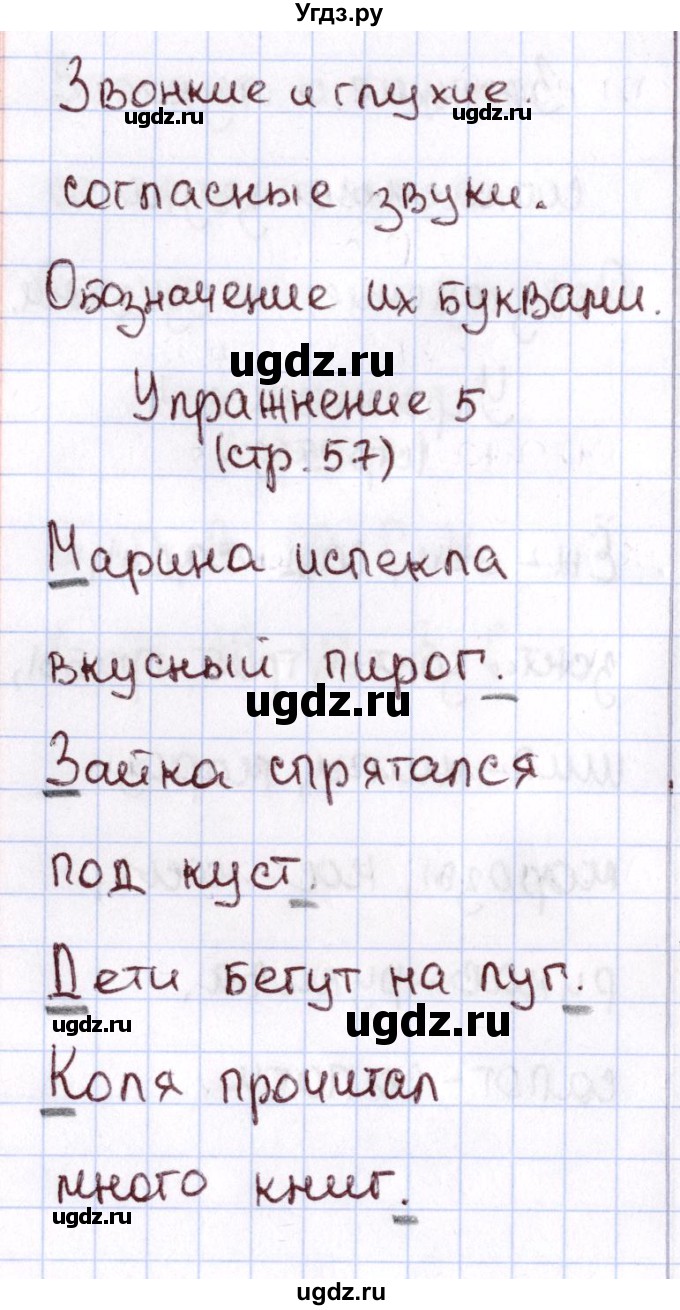 Угдз.ру
Звонкие и глухие.
ugdz.ru ugdz.ru
согласные звуки.
Обозначение их буквами.
ugdz.ru
Упражнение 5
(стр. 57)
Марина испекла
вкусный пирог.
ugdz.ru
Зайка спрятался
под куст.
Дети бегут на луг.
ugdz.ru ugdz.ru
Коля прочитал
много книг.
ugdz.ru
ugdz.ru